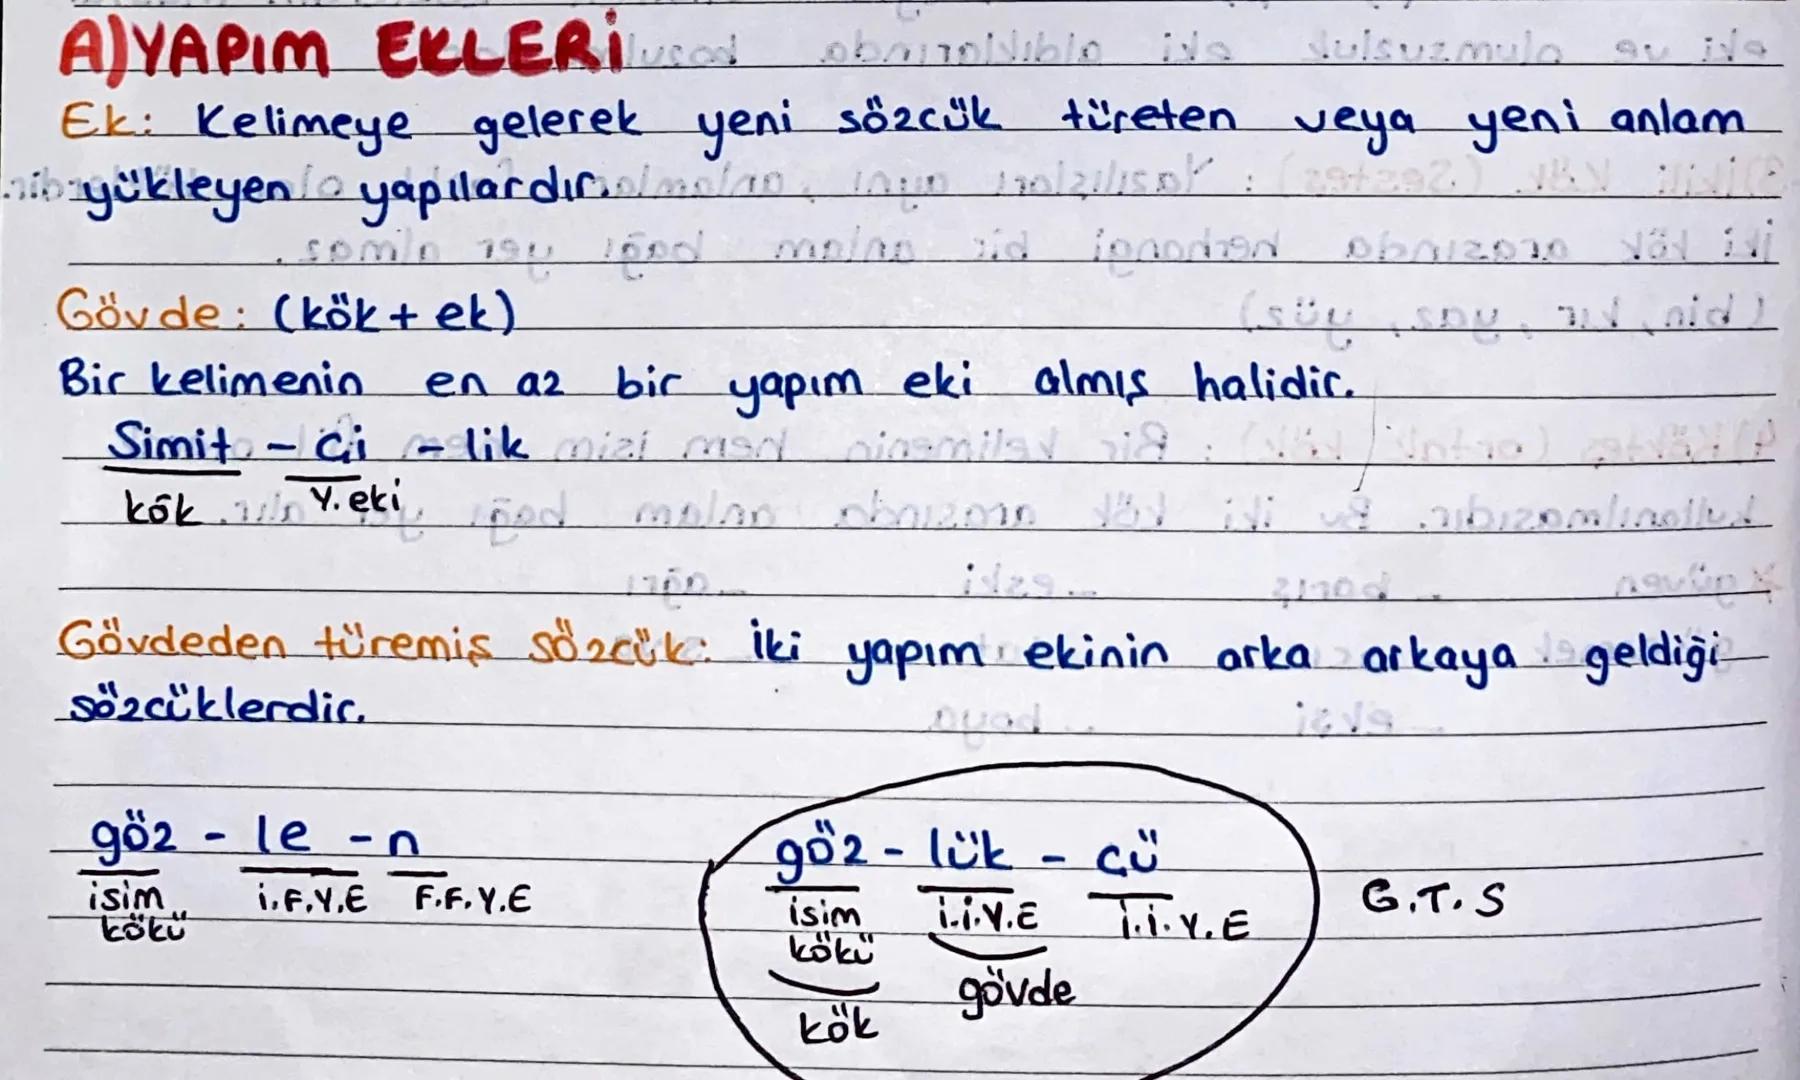 A) YAPIM EKLERİ
Ek: Kelimeye gelerek yeni sözcük türeten veya yeni anlam
yükleyen yapılardır.
Gövde: (kök + ek)
Bir kelimenin en az bir yapım eki almış halidir.
Simit - çi - lik
kök Y. eki
Gövdeden türemiş sözcük: İki yapım ekinin arka arkaya geldiği
sözcüklerdir.
göz - le - n
isim kökü i.F.Y.E F.F.Y.E
göz - lük - cü
isim kökü i.i.Y.E i.i.Y.E G.T.S
kök gövde